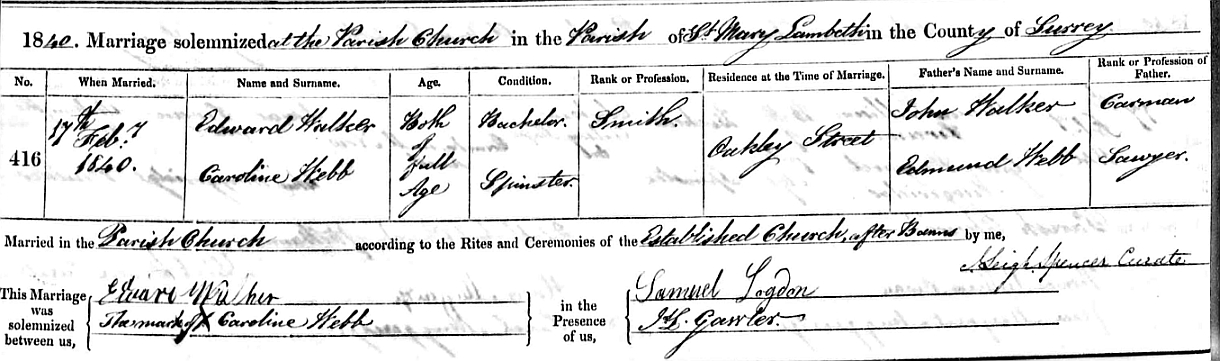 1840. Marriage solemnized at the Parish Church in the Parish of St Mary Lambeth in the County of Surrey
No. When Married. Name and Surname. Age. Condition. Rank or Profession. Residence at the Time of Marriage. Father's Name and Surname. Rank or Profession of Father.
416
17th Feby 1840.
Edward Walker
Caroline Webb
Both of full Age
Bachelor.
Spinster.
Smith.
Oakley Street
John Walker
Edmund Webb
Carman
Sawyer.
Married in the Parish Church according to the Rites and Ceremonies of the Established Church, after Banns by me,
Leigh Spencer Curate
This Marriage was solemnized between us,
Edward Walker
The mark of X Caroline Webb
in the Presence of us,
Samuel Logdon
Gawler.